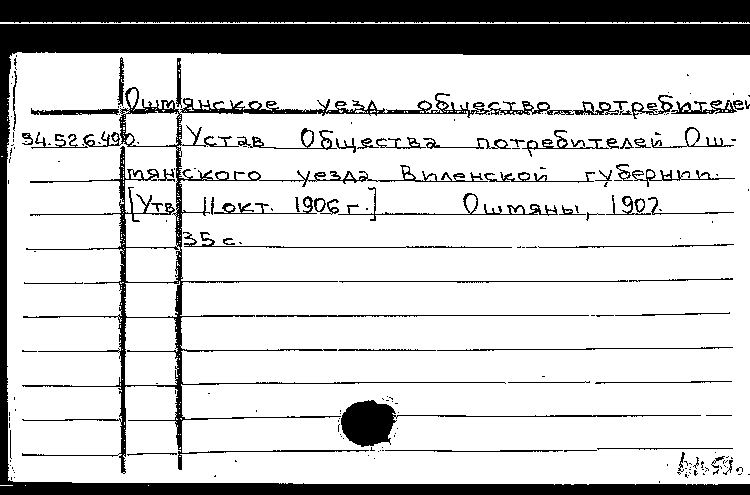 Ошмянское уезд. общество потребителей
34.526.490. Устав Общества потребителей Ош-
мянского уезда Виленской губернии.
[Утв. 11 окт. 1906 г.] Ошмяны, 1907.
35 с.